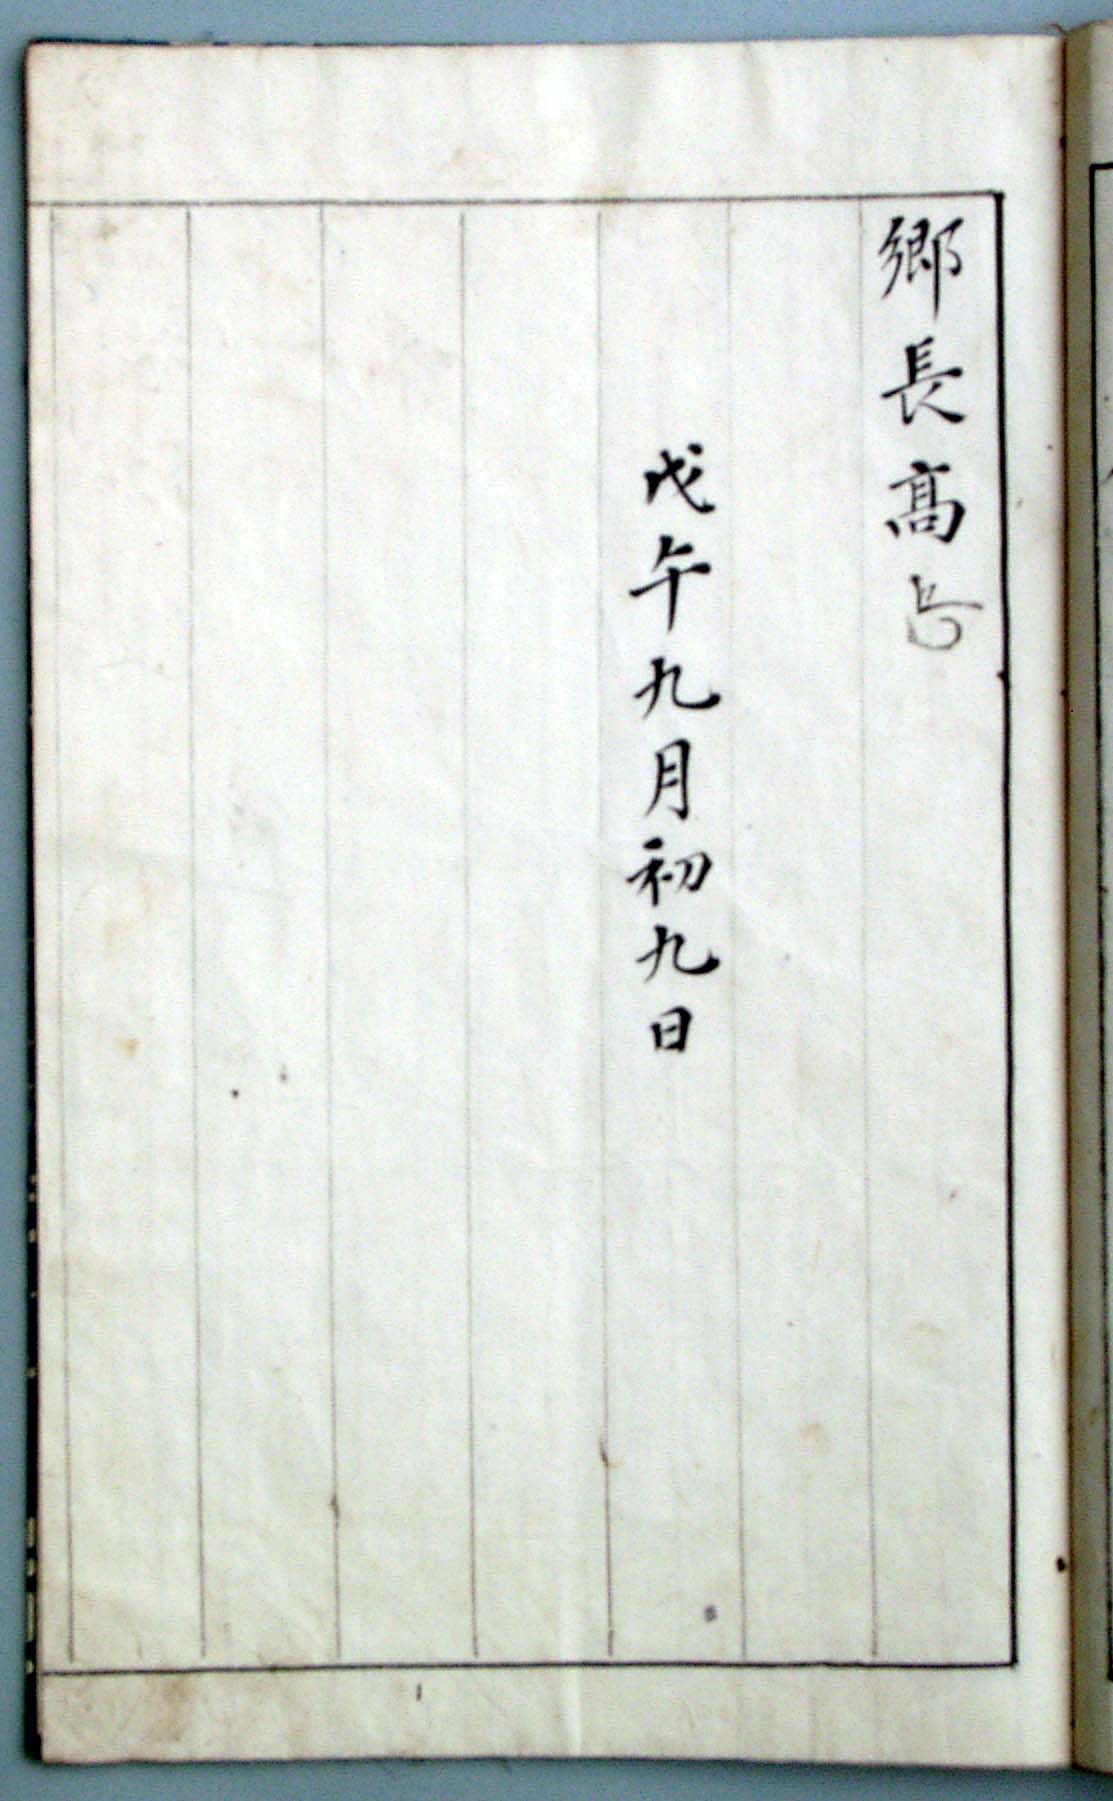 鄕長高
戊午九月初九日